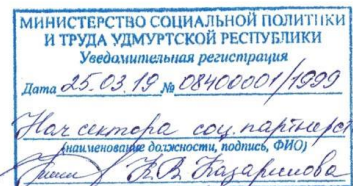 МИНИСТЕРСТВО СОЦИАЛЬНОЙ ПОЛИТИКИ
И ТРУДА УДМУРТСКОЙ РЕСПУБЛИКИ
Уведомительная регистрация
Дата 25.03.19 № 08400001/1999
Нач сектора соц. партнерст
(наименование должности, подпись, ФИО)
К.В.